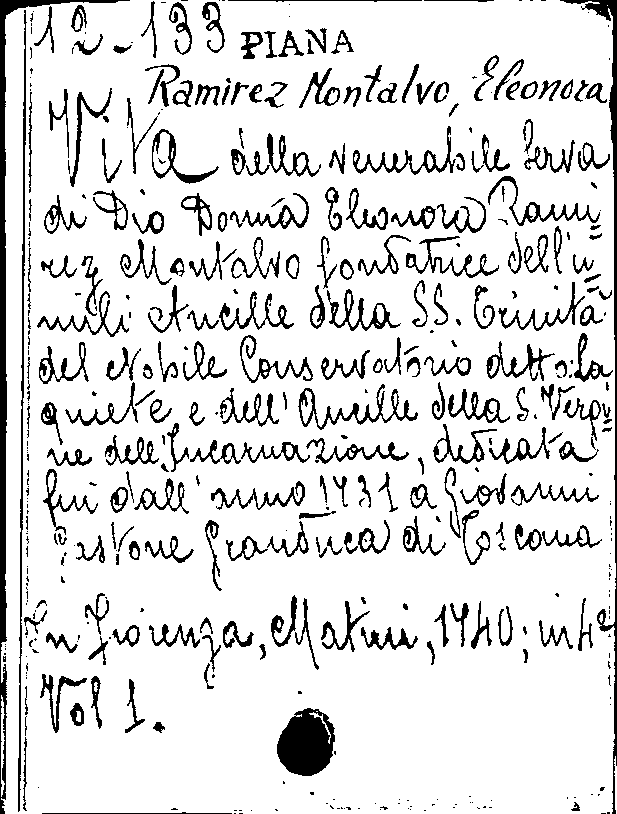 12-133 PIANA
Ramirez Montalvo, Eleonora
Vita della venerabile Serva
di Dio Donna Eleonora Rami=
rez Montalvo fondatrice dell'u=
mili Ancille della SS. Trinità
del Nobile Conservatorio detto: La
quiete e dell' Ancille della S. Vergi=
ne dell'Incarnazione, dedicata
fin dall' anno 1731 a Giovanni
Gastone Granduca di Toscana
In Fiorenza, Matini, 1740; in 4º
Vol 1.